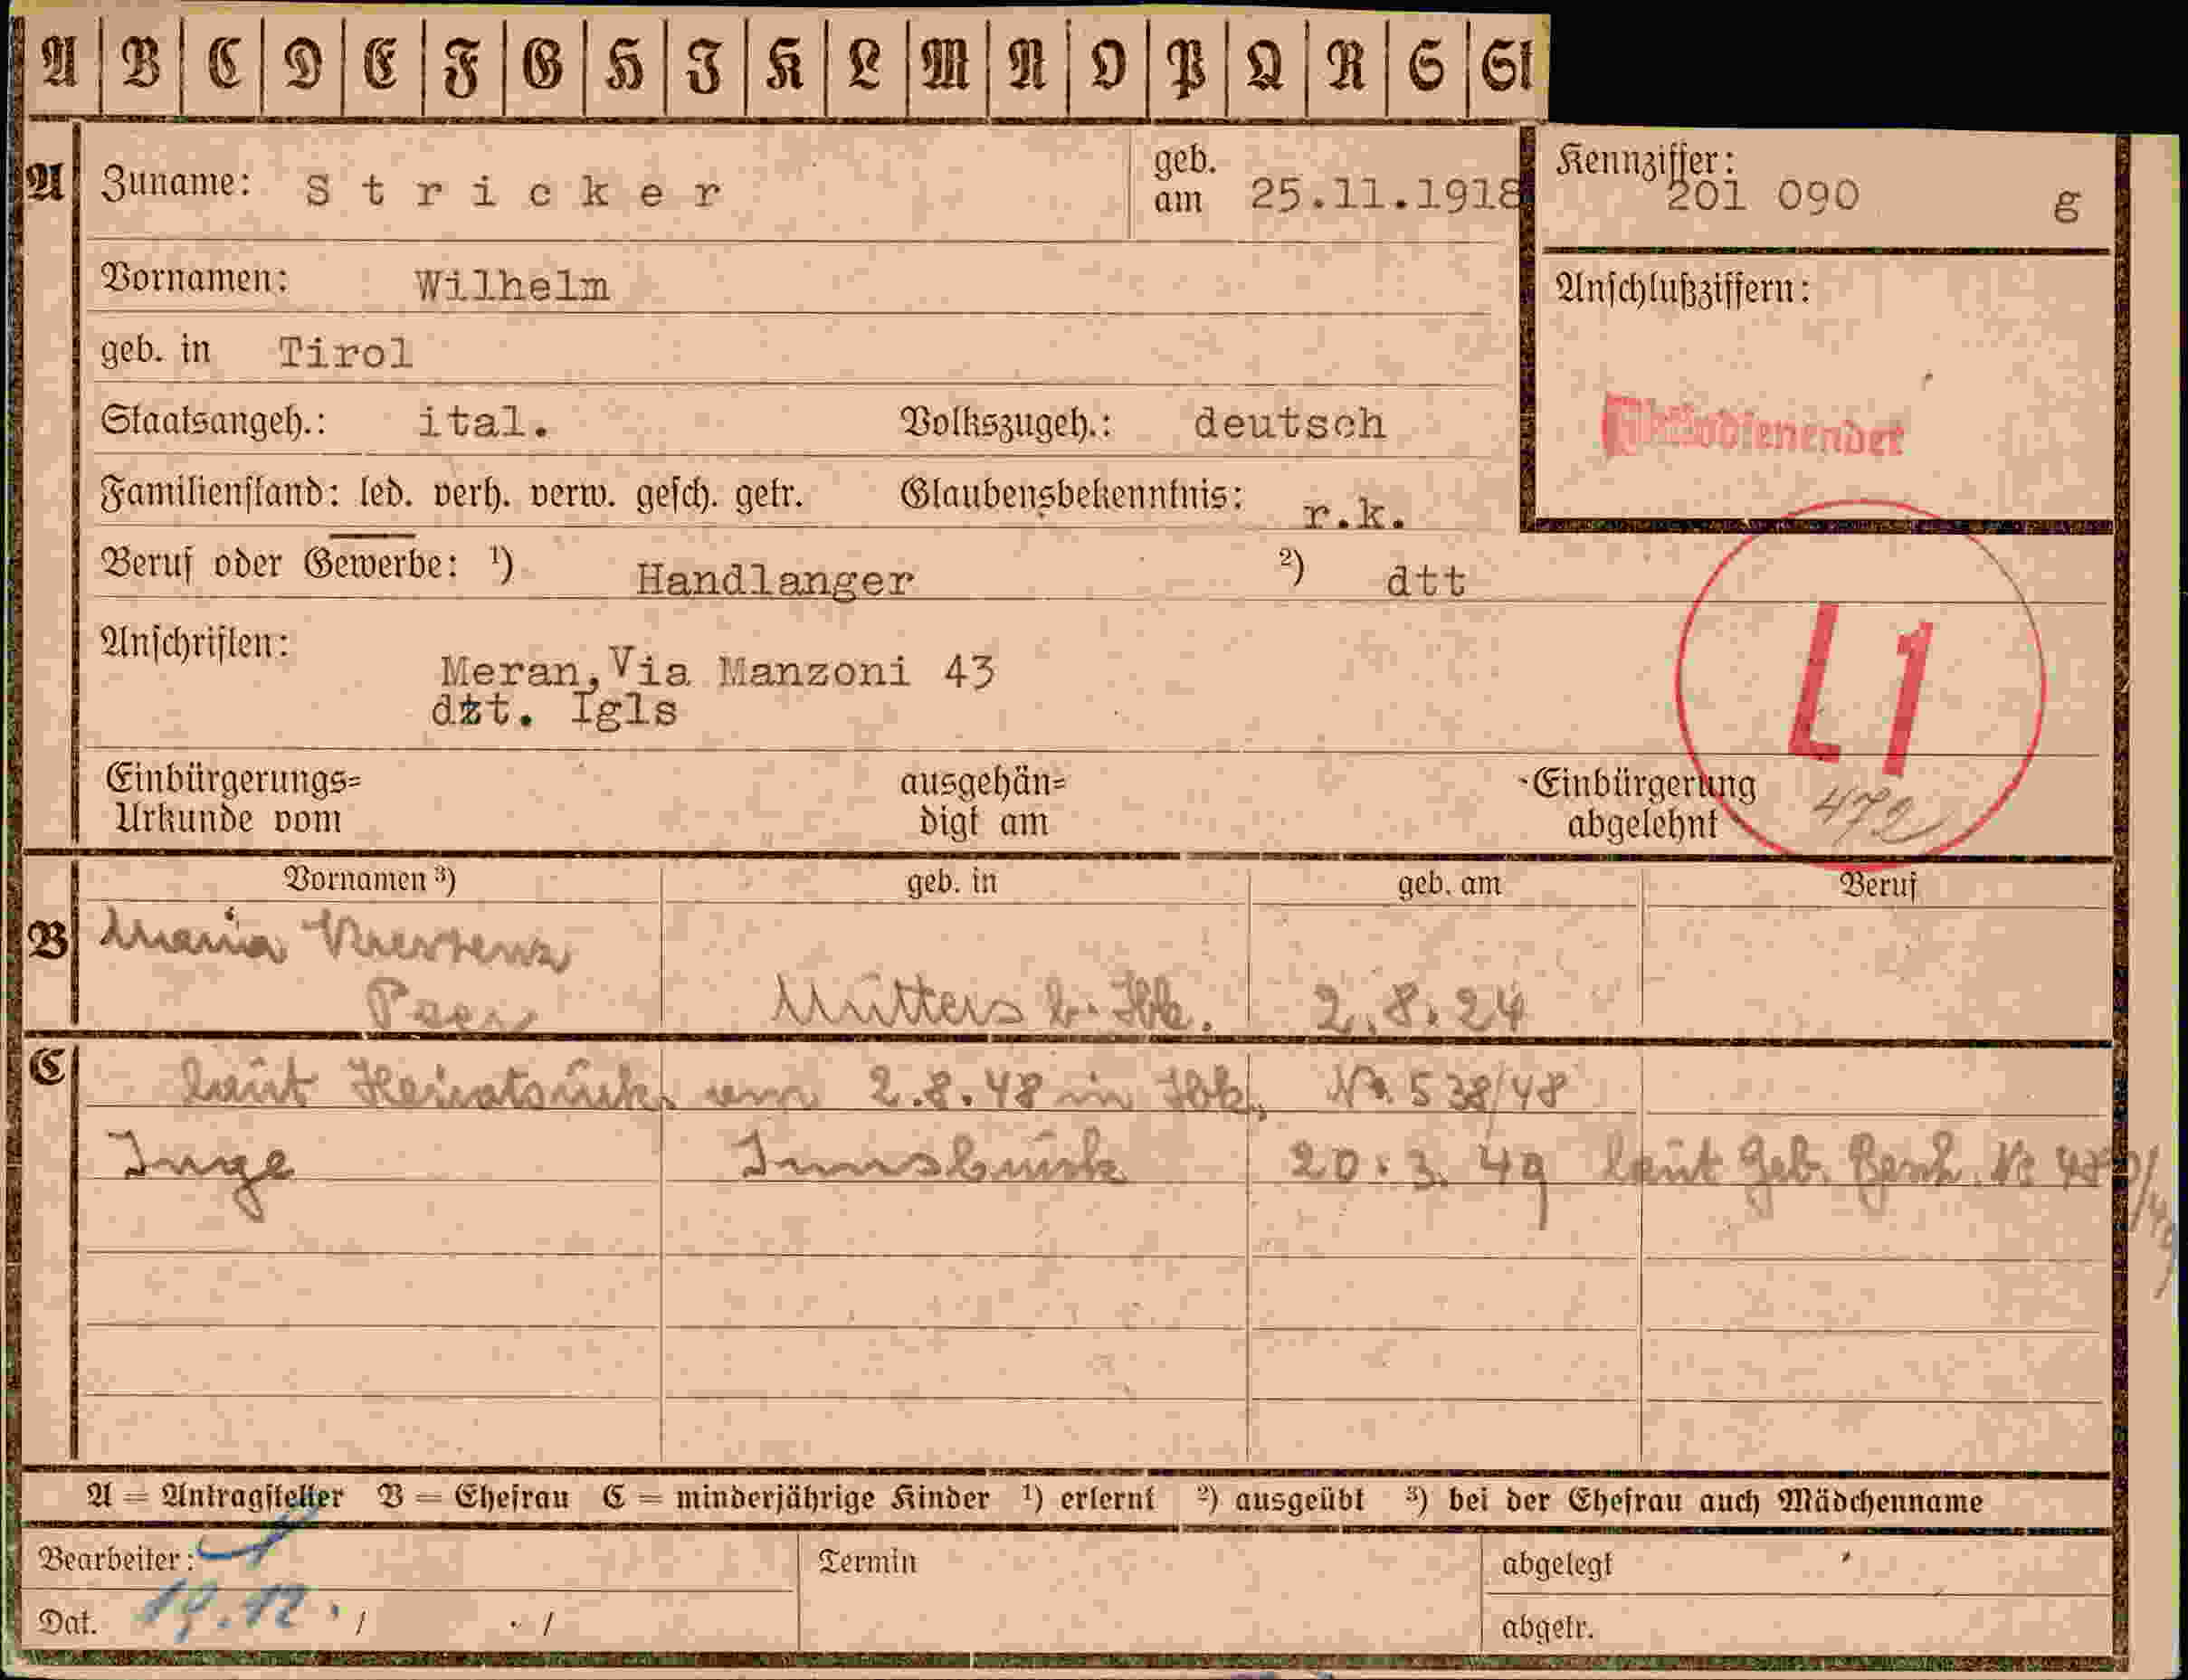 A B C D E F G H J K L M N O P Q R S St
A Zuname: Stricker geb. am 25.11.1918 Kennziffer: 201 090 g
Vornamen: Wilhelm Anschlußziffern:
geb. in Tirol
Staatsangeh.: ital. Volkszugeh.: deutsch
Familienstand: led. verh. verw. gesch. getr. Glaubensbekenntnis: r.k.
Beruf oder Gewerbe: 1) Handlanger 2) dtt
Anschriften:
Meran, Via Manzoni 43
dzt. Igls
L1
Einbürgerungs= Urkunde vom ausgehän= digt am Einbürgerung abgelehnt 472
Vornamen 3) geb. in geb. am Beruf
B Maria Kreszenz
Mutters b. Ibk. 2.8.24
C laut Heiratsurk. vom 2.8.48 in Ibk. Nr. 538/48
Inge Innsbruck 20.3.49 laut Geb. Besch. Nr.
A = Antragsteller B = Ehefrau C = minderjährige Kinder 1) erlernt 2) ausgeübt 3) bei der Ehefrau auch Mädchenname
Bearbeiter: Termin abgelegt
Dat. 19.12. / . / abgetr.